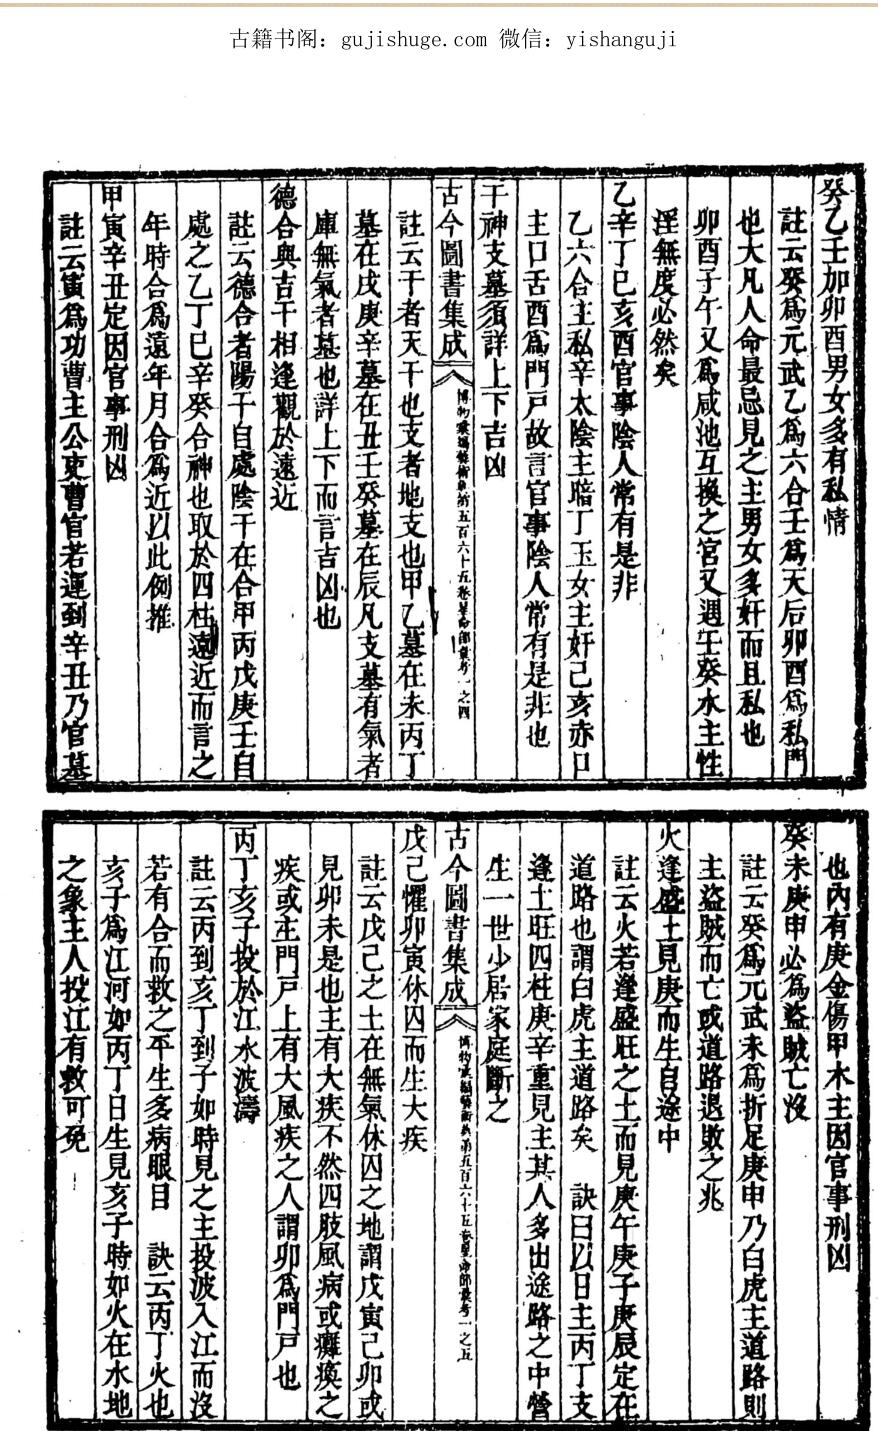 古籍书阁：gujishuge.com 微信：yishanguji
癸乙壬加卯酉男女多有私情
註云癸爲元武乙爲六合壬爲天后卯酉爲私門
也大凡人命最忌見之主男女多奸而且私也
卯酉子午又爲咸池互換之宮又遇壬癸水主性
淫無度必然矣
乙辛丁巳亥酉官事陰人常有是非
乙六合主私辛太陰主暗丁玉女主奸己亥亦口
主口舌酉爲門戸故言官事陰人常有是非也
干神支墓須詳上下吉凶
古今圖書集成
博物彙編藝術典第五百六十五卷星命部彙考一之四
註云干者天干也支者地支也甲乙墓在未丙丁
墓在戌庚辛墓在丑壬癸墓在辰凡支墓有氣者
庫無氣者墓也詳上下而言吉凶也
德合與吉干相逢觀於遠近
註云德合者陽干自處陰干在合甲丙戊庚壬自
處之乙丁巳辛癸合神也取於四柱遠近而言之
年時合爲遠年月合爲近以此例推
甲寅辛丑定因官事刑凶
註云寅爲功曹主公吏曹官若運到辛丑乃官墓
也內有庚金傷甲木主因官事刑凶
癸未庚申必爲盜賊亡沒
註云癸爲元武未爲折足庚申乃白虎主道路則
主盜賊而亡或道路退敗之兆
火逢盛土見庚而生自途中
註云火若逢盛旺之土而見庚午庚子庚辰定在
道路也謂白虎主道路矣　訣曰以日主丙丁支
逢土旺四柱庚辛重見主其人多出途路之中營
生一世少居家庭斷之
古今圖書集成
博物彙編藝術典第五百六十五卷星命部彙考一之五
戊己懼卯寅休囚而生大疾
註云戊己之土在無氣休囚之地謂戊寅己卯或
見卯未是也主有大疾不然四肢風病或癱瘓之
疾或主門戸上有大風疾之人謂卯爲門戸也
丙丁亥子投於江水波濤
註云丙到亥丁到子如時見之主投波入江而沒
若有合而救之平生多病眼目　訣云丙丁火也
亥子爲江河如丙丁日生見亥子時如火在水地
之象主人投江有救可免